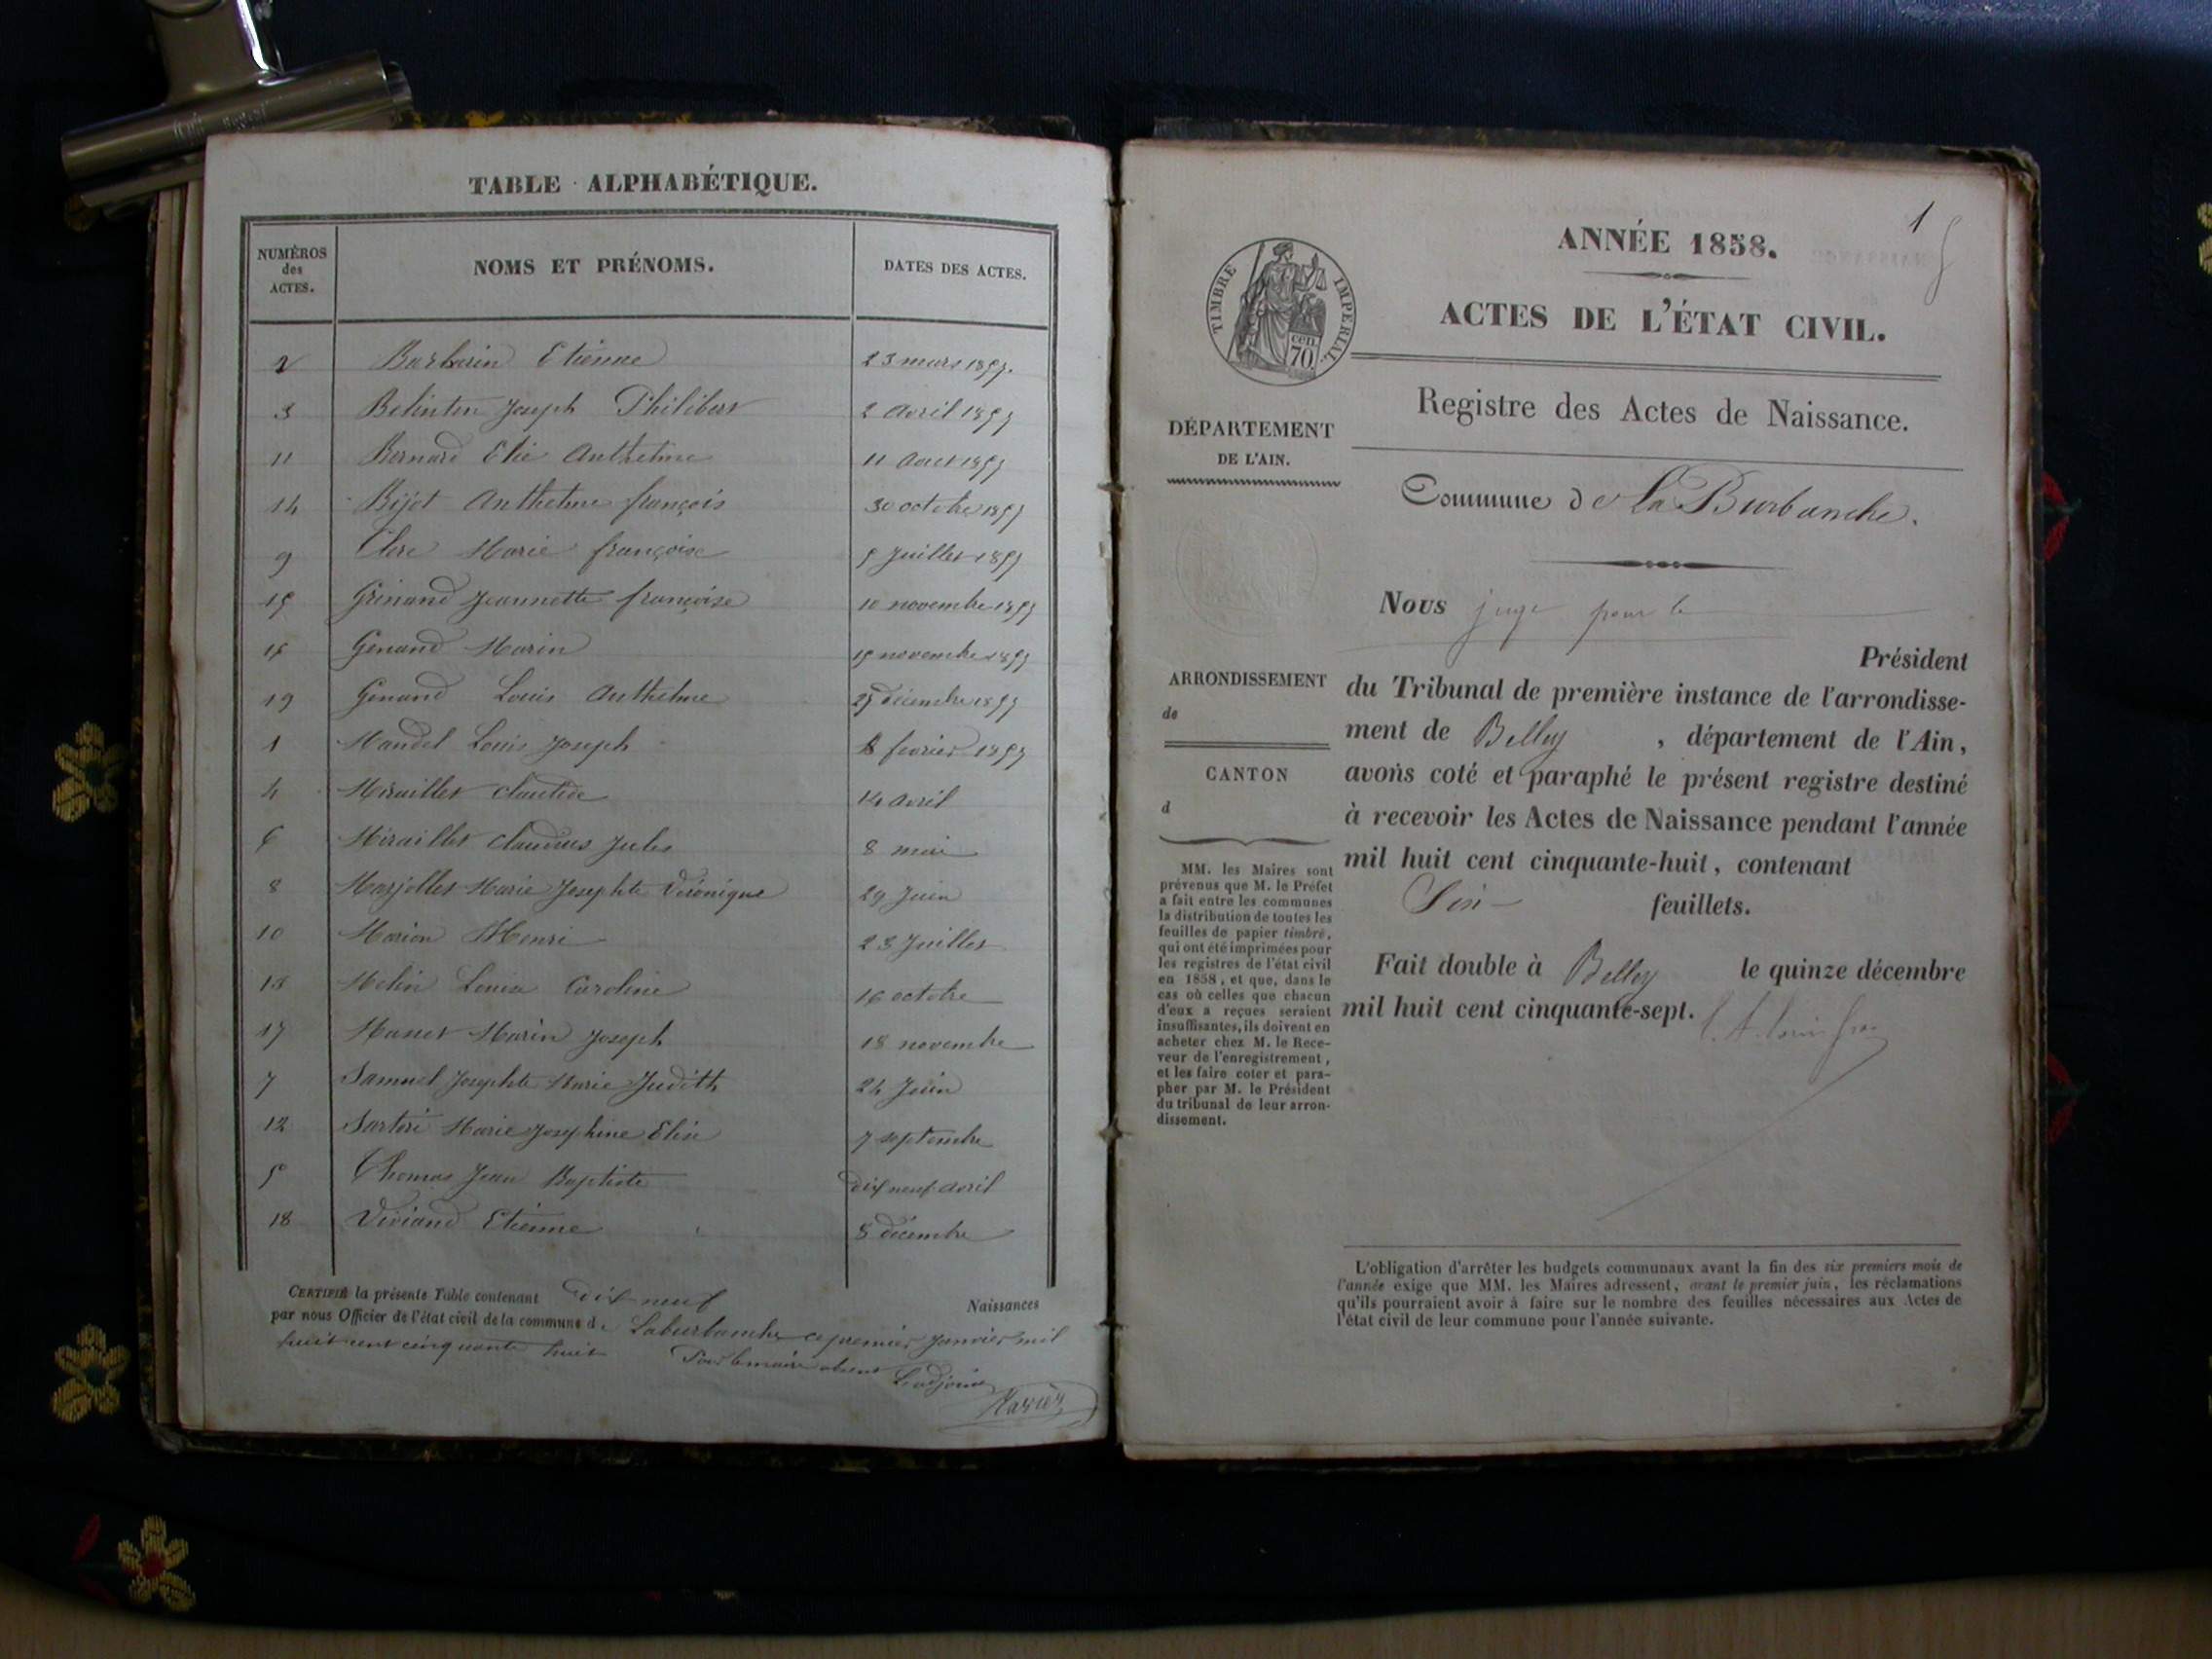 TABLE ALPHABÉTIQUE.
NUMÉROS
des
ACTES.
NOMS ET PRÉNOMS.
DATES DES ACTES.
2 Barbarin Etienne 23 mars 1857.
3 Belinten Joseph Philibert 2 avril 1857
11 Bernard Elie Anthelme 11 Aout 1857
14 Bijot Anthelme françois 30 octobre 1857
9 Clere Marie françoise 5 Juillet 1857
15 Grinand Jeannette françoise 10 novembre 1857
16 Genand Marin 15 novembre 1857
19 Genand Louis Anthelme 25 décembre 1857
1 Mandel Louis Joseph 8 fevrier 1857
4 Miraillet Claudede 14 avril
6 Miraillet Claudius Jules 8 mai
8 Marjollet Marie Josephte Véronique 29 Juin
10 Marion Henri 23 Juillet
13 Melin Louise Caroline 16 octobre
17 Masset Marin Joseph 18 novembre
7 Samuel Josephte Marie Judith 24 Juin
12 Sartori Marie Josephine Elise 7 septembre
5 Thomas Jean Baptiste dix neuf avril
18 Viviand Etienne 8 décembre
CERTIFIÉ la présente Table contenant dix neuf Naissances
par nous Officier de l'état civil de la commune de Laburbanche ce premier Janvier mil
huit cent cinquante huit Pour le maire absent
L'adjoint
1
ANNÉE 1858.
TIMBRE IMPÉRIAL
cen.
70.
ACTES DE L'ÉTAT CIVIL.
Registre des Actes de Naissance.
DÉPARTEMENT
DE L'AIN.
Commune de La Burbanche.
Nous juge pour le
Président
ARRONDISSEMENT
de
CANTON
d
du Tribunal de première instance de l'arrondisse-
ment de Belley , département de l'Ain,
avons coté et paraphé le présent registre destiné
à recevoir les Actes de Naissance pendant l'année
mil huit cent cinquante-huit, contenant
Six feuillets.
Fait double à Belley le quinze décembre
mil huit cent cinquante-sept.
MM. les Maires sont
prévenus que M. le Préfet
a fait entre les communes
la distribution de toutes les
feuilles de papier timbré,
qui ont été imprimées pour
les registres de l'état civil
en 1858, et que, dans le
cas où celles que chacun
d'eux a reçues seraient
insuffisantes, ils doivent en
acheter chez M. le Rece-
veur de l'enregistrement,
et les faire coter et para-
pher par M. le Président
du tribunal de leur arron-
dissement.
L'obligation d'arrêter les budgets communaux avant la fin des six premiers mois de
l'année exige que MM. les Maires adressent, avant le premier juin, les réclamations
qu'ils pourraient avoir à faire sur le nombre des feuilles nécessaires aux Actes de
l'état civil de leur commune pour l'année suivante.